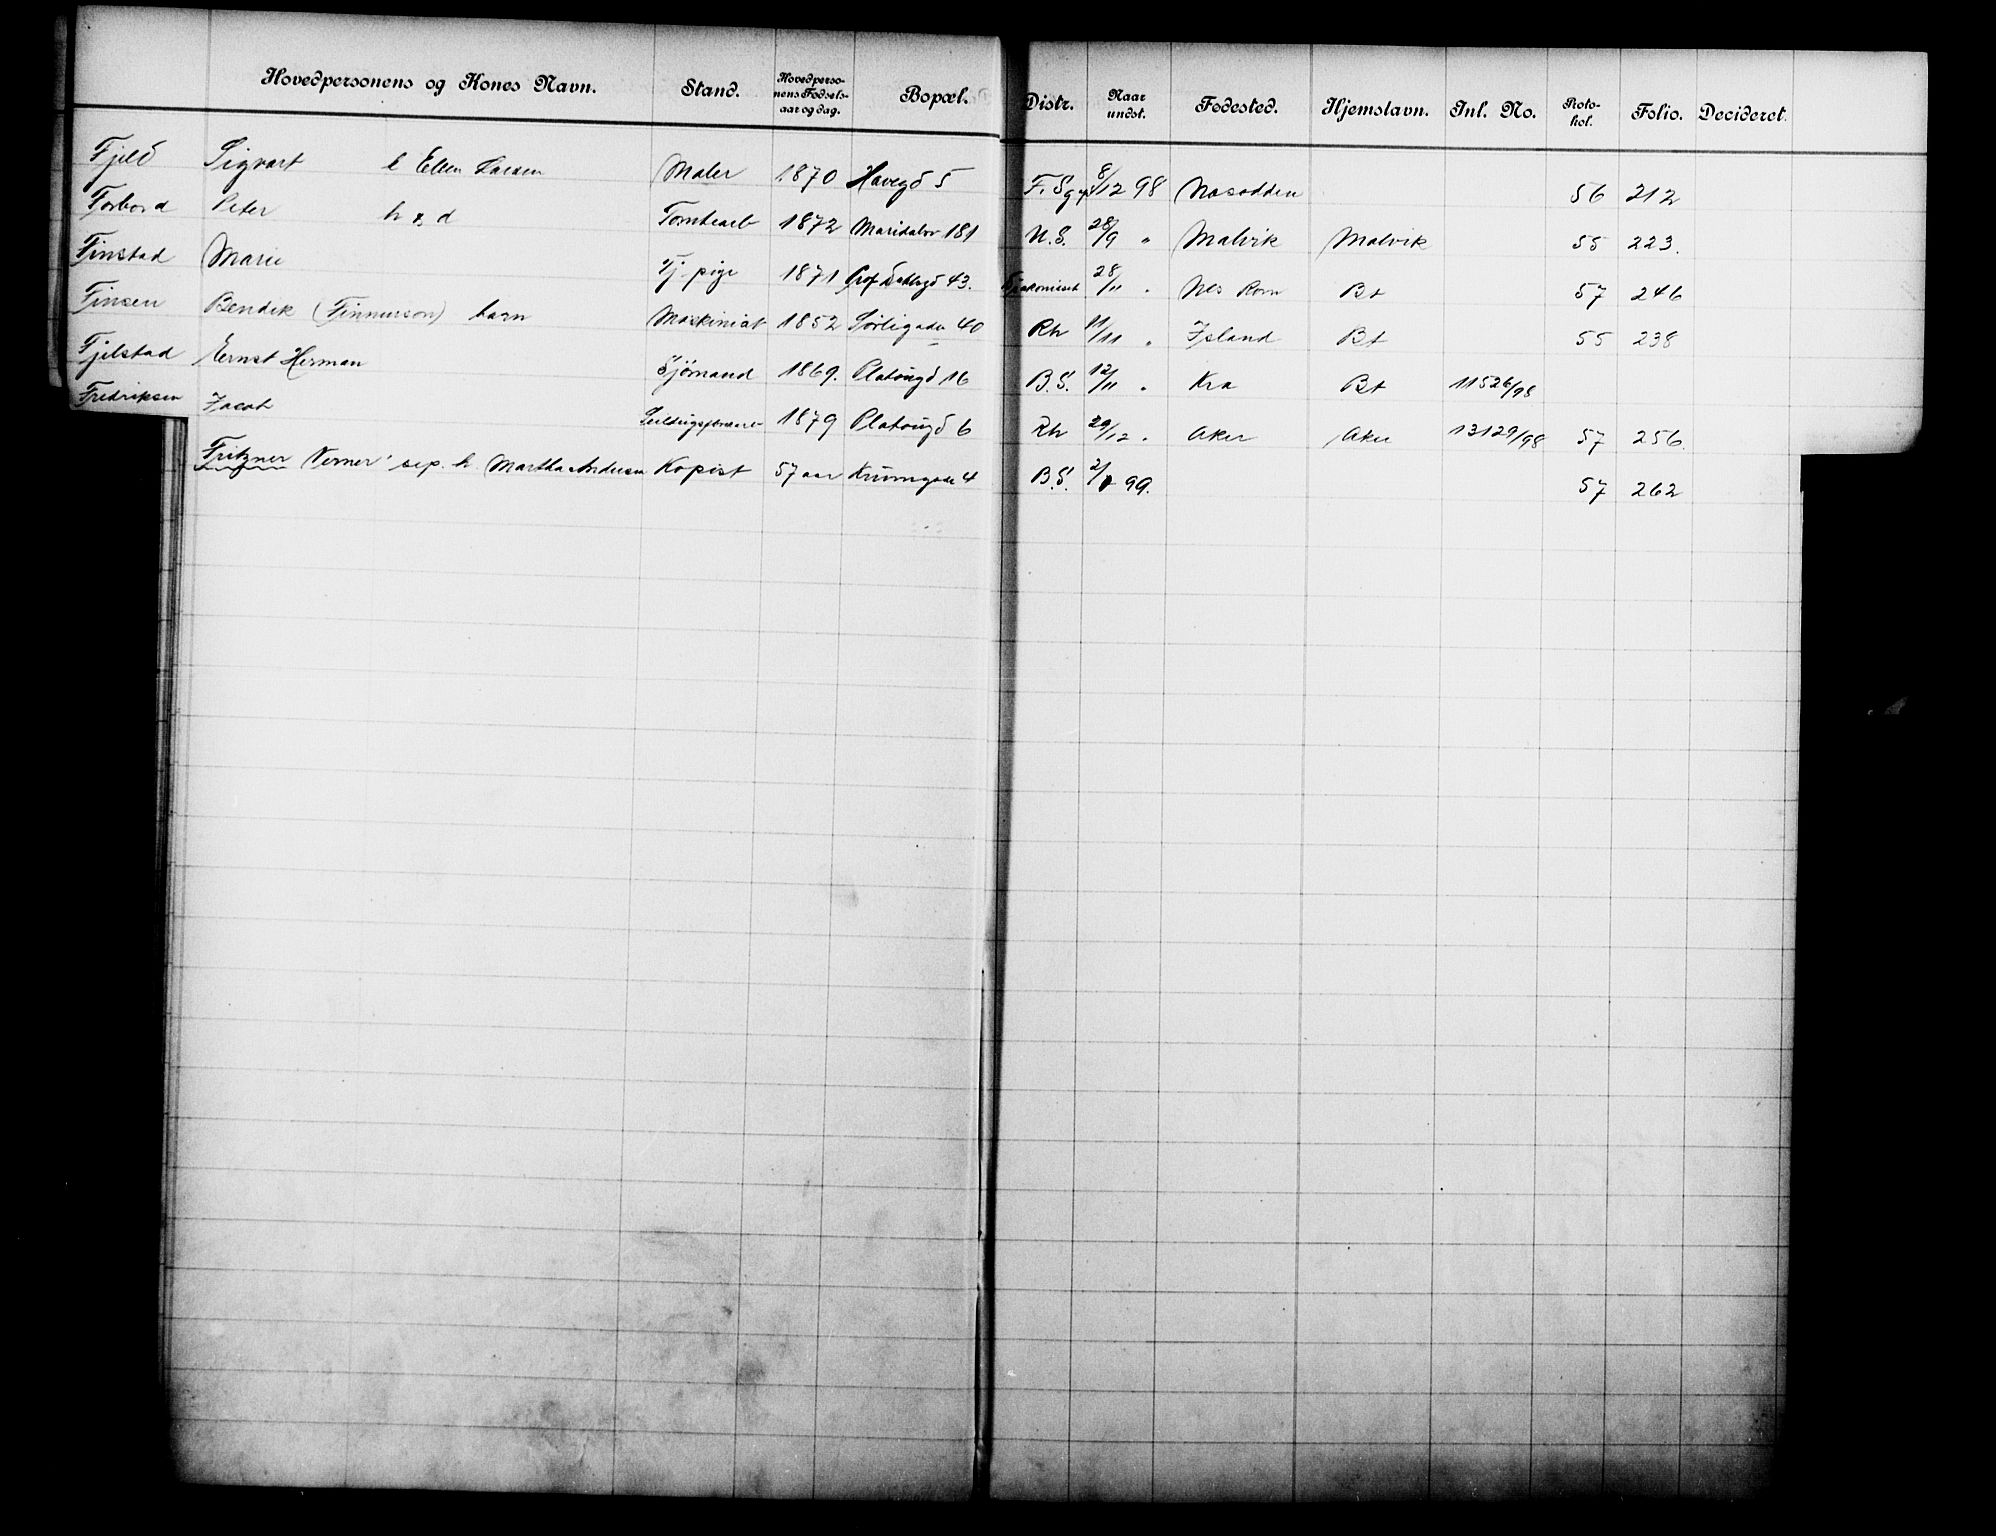 Hovedpersonens og Kones Navn. Stand. Hovedperso-nens Fødsels-aar og dag. Bopæl. Distr. Naar undst. Fødested. Hjemstavn. Inl. No. Proto-kol. Folio. Decideret.
Fjeld Sigvart h Ellen Larsen Maler 1870 Havegd 5 F. Sgp 8/12 98 Nesodden 56 212
Forbord Peter h & d Tomtearb 1872 Maridalsv 181 N.S. 28/9 " Malvik Malvik 55 223.
Finstad Marie Tj. pige 1871 Prof Dahlsgd 43. 28/11 " Nes Rom Bt 57 246
Finsen Bendik (Finnurson) barn Maskinist 1852 Sørligade 40 Rh 11/11 " Island Bt 55 238
Fjelstad Ernst Herman Sjømand 1869. Platougd 16 B.S. 12/11 " Kra Bt 11526/98
Fredriksen Jacob 1879 Platougd 6 Rh 29/12 " Aker Aker 13129/98 57 256.
Fritzner Verner sep. h. Martha Andersen Kopist 57 aar Krumgade 4 B.S. 99. 57 262